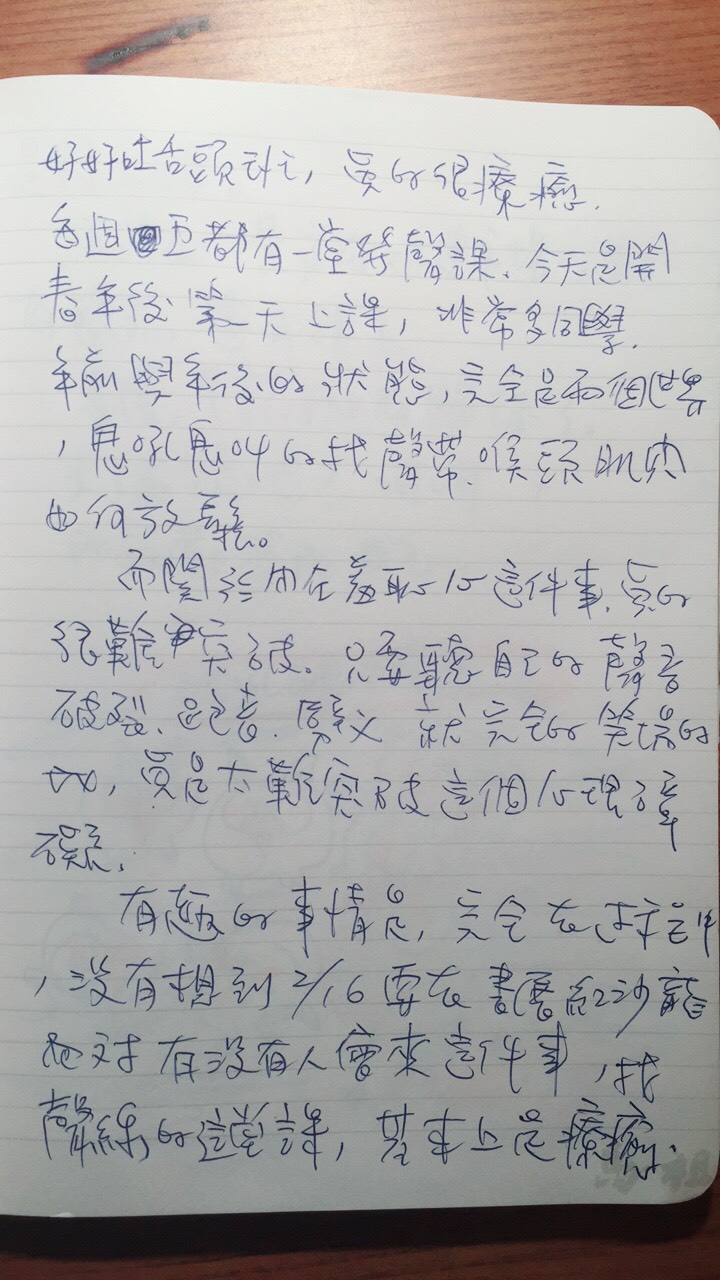 好好吐舌頭了,真的很療癒.
每週五都有一堂發聲課、今天是開
春年後第一天上課,非常多同學.
年前與年後的狀態,完全是兩個世界
,鬼吼鬼叫的找聲帶、喉頭肌肉
如何放鬆。
而關於內在羞恥心這件事、真的
很難突破。只要聽自己的聲音
破裂、跑音、就完全的笑場的
,真是太難突破這個心理障
礙.
有趣的事情是,完全在過程中
,沒有想到2/16要在書展紅沙龍
有沒有人會來這件事,找
聲線的這堂課,基本上是療癒.